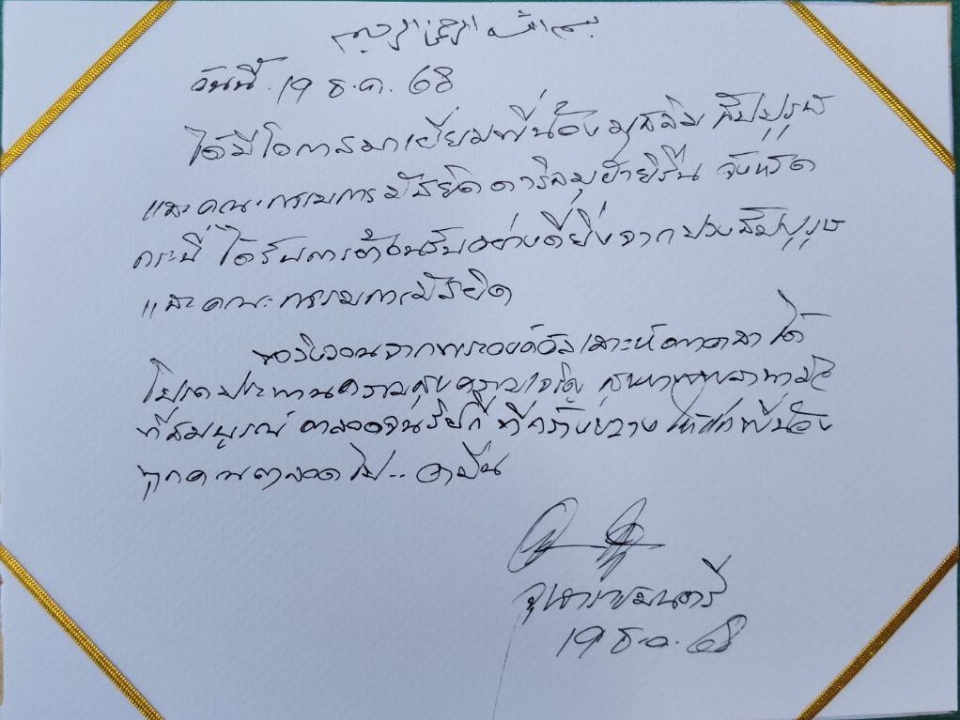 بسم الله الرحمن الرحيم
วันนี้ 19 ธ.ค. 68
ได้มีโอกาสมาเยี่ยมพี่น้องมุสลิม สัปปุรุษ
และคณะกรรมการมัสยิดดารุลมุฮายิรีน จังหวัด
กระบี่ ได้รับการต้อนรับอย่างดียิ่งจากปวงสัปปุรุษ
และคณะกรรมการมัสยิด
ขอวิงวอนจากพระองค์อัลเลาะห์ตาอาลา ได้
โปรดประทานความสุข ความเจริญ สุขภาพพลานามัย
ที่สมบูรณ์ ตลอดจนริสกี ที่กว้างขวาง ให้แก่พี่น้อง
ทุกคนตลอดไป.. อามีน
จุฬาราชมนตรี
19 ธ.ค. 68